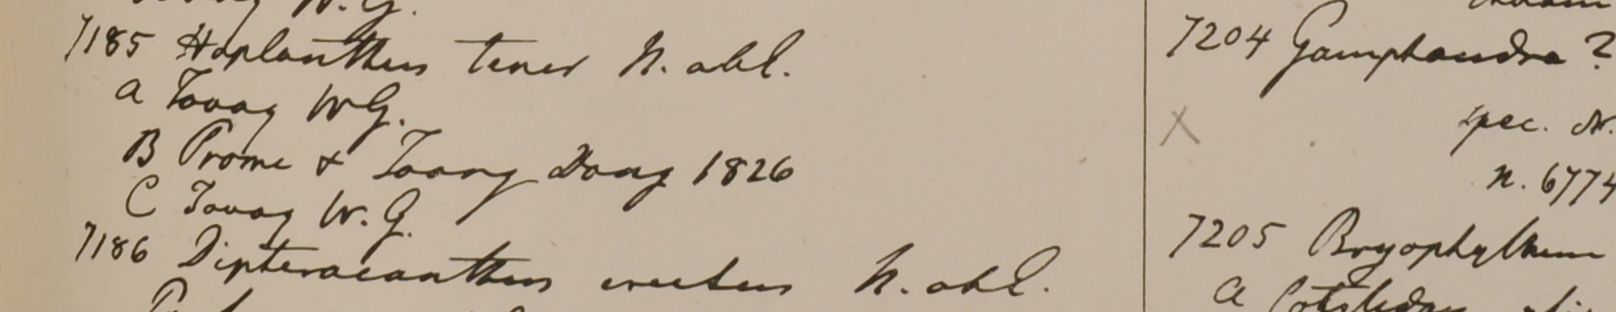 W.G.
7185 Haplanthus tener N. ab E.
a Tavoy W.G.
B Prome & Toong Dong 1826
C Tavoy W.G.
7186 Dipteracanthus erectus N. ab E.
7204 Gomphandra ?
X
spec.
n. 6774
7205 Bryophyllum
a Cotyledon